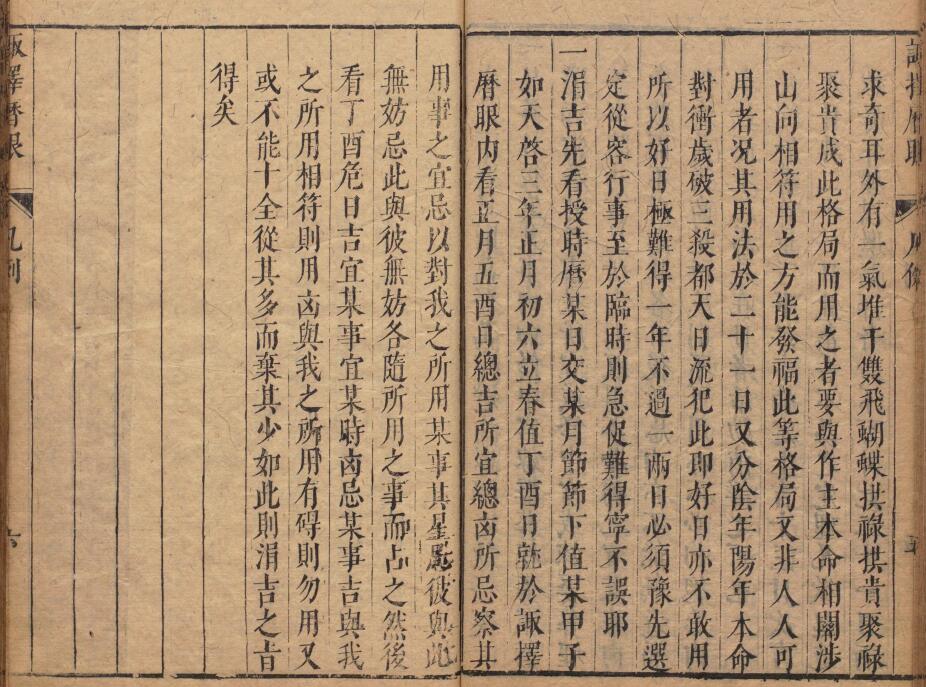 求奇耳外有一氣堆干雙飛蝴蝶拱祿拱貴聚祿
聚貴成此格局而用之者要與作主本命相關涉
山向相符用之方能發福此等格局又非人人可
用者況其用法於二十一日又分陰年陽年本命
對衝歲破三殺都天日流犯此即好日亦不敢用
所以好日極難得一年不過一兩日必須豫先選
定從容行事至於臨時則急促難得寧不誤耶
一涓吉先看授時曆某日交某月節節下值某甲子
如天啓三年正月初六立春值丁酉日就於諏擇
曆眼內看正月五酉日總吉所宜總凶所忌察其
用事之宜忌以對我之所用某事其星彼與此
無妨忌此與彼無妨各隨所用之事而占之然後
看丁酉危日吉宜某事宜某時凶忌某事吉與我
之所用相符則用凶與我之所用有碍則勿用又
或不能十全從其多而棄其少如此則涓吉之旨
得矣
諏擇曆眼 凡例 六